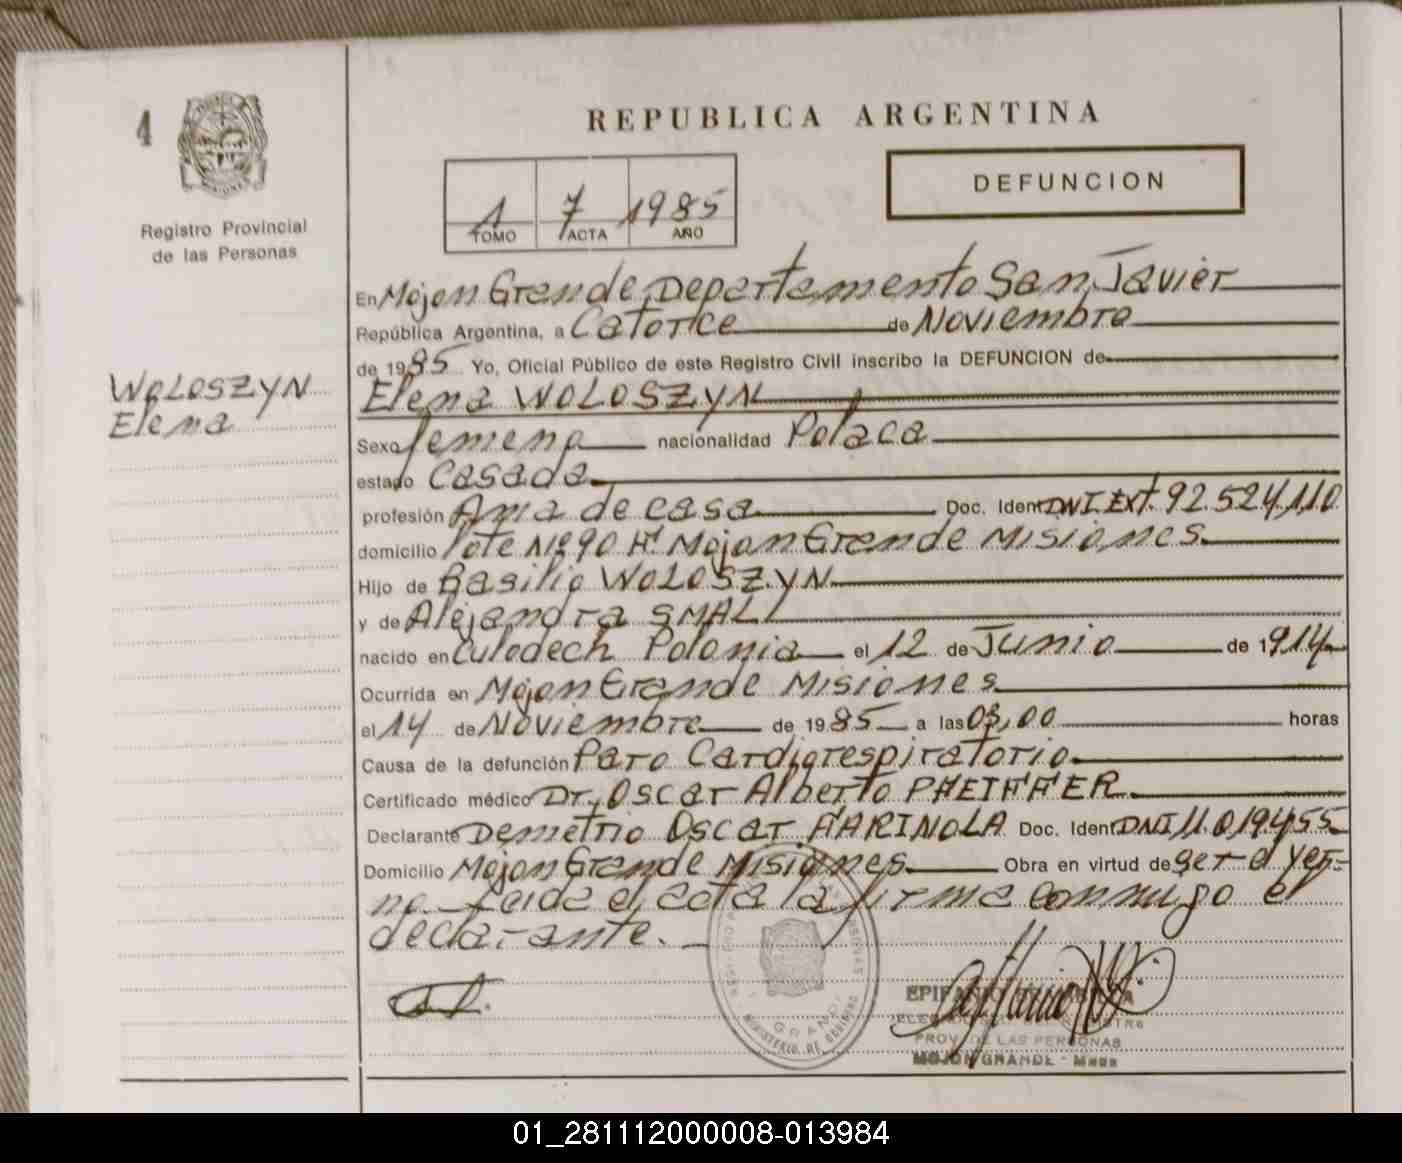 4
MISIONES
Registro Provincial
de las Personas
REPUBLICA ARGENTINA
1 7 1985
TOMO ACTA AÑO
DEFUNCION
WOLOSZYN
Elena
En Mojon Grande, Departamento San Javier
República Argentina, a Catorce de Noviembre
de 1985 Yo, Oficial Público de este Registro Civil inscribo la DEFUNCION de
Elena WOLOSZYN
Sexo femeno nacionalidad Polaca
estado Casada
profesión Ama de casa Doc. Ident DNI.EXt. 92.524.110
domicilio lote Nº 90 Hª Mojon Grande Misiones
Hijo de Basilio WOLOSZYN
y de Alejandra SMALL
nacido en Culodech Polonia el 12 de Junio de 1914
Ocurrida en Mojon Grande Misiones
el 14 de Noviembre de 1985 a las 03,00 horas
Causa de la defunción Paro Cardiorespiratorio
Certificado médico Dr. Oscar Alberto PHEIFFER
Declarante Demetrio Oscar FARINOLA Doc. Ident DNI 11.019.455
Domicilio Mojon Grande Misiones Obra en virtud de ser el yer-
no leida el acta la firma conmigo el
declarante.
GRANDE
MINISTERIO DE GOBIERNO
PROV. DE LAS PERSONAS
MOJON GRANDE - Mnes
01_281112000008-013984